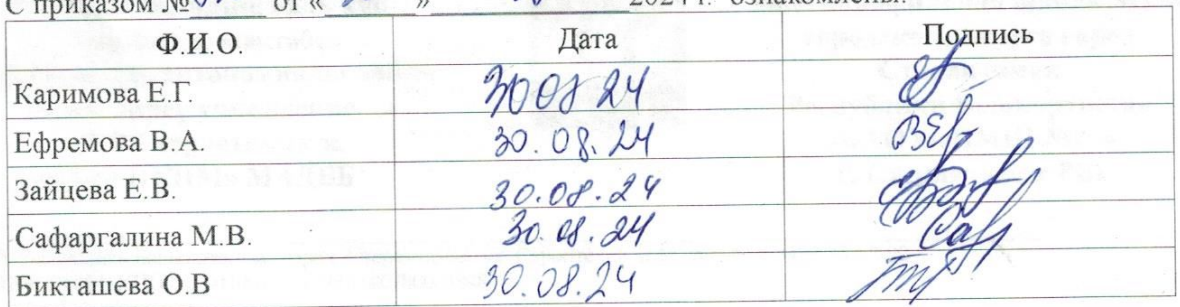 С приказом № от « » 2024 г. ознакомлены:
Ф.И.О. Дата Подпись
Каримова Е.Г. 30 08 24
Ефремова В.А. 30.08.24
Зайцева Е.В. 30.08.24
Сафаргалина М.В. 30.08.24
Бикташева О.В 30.08.24